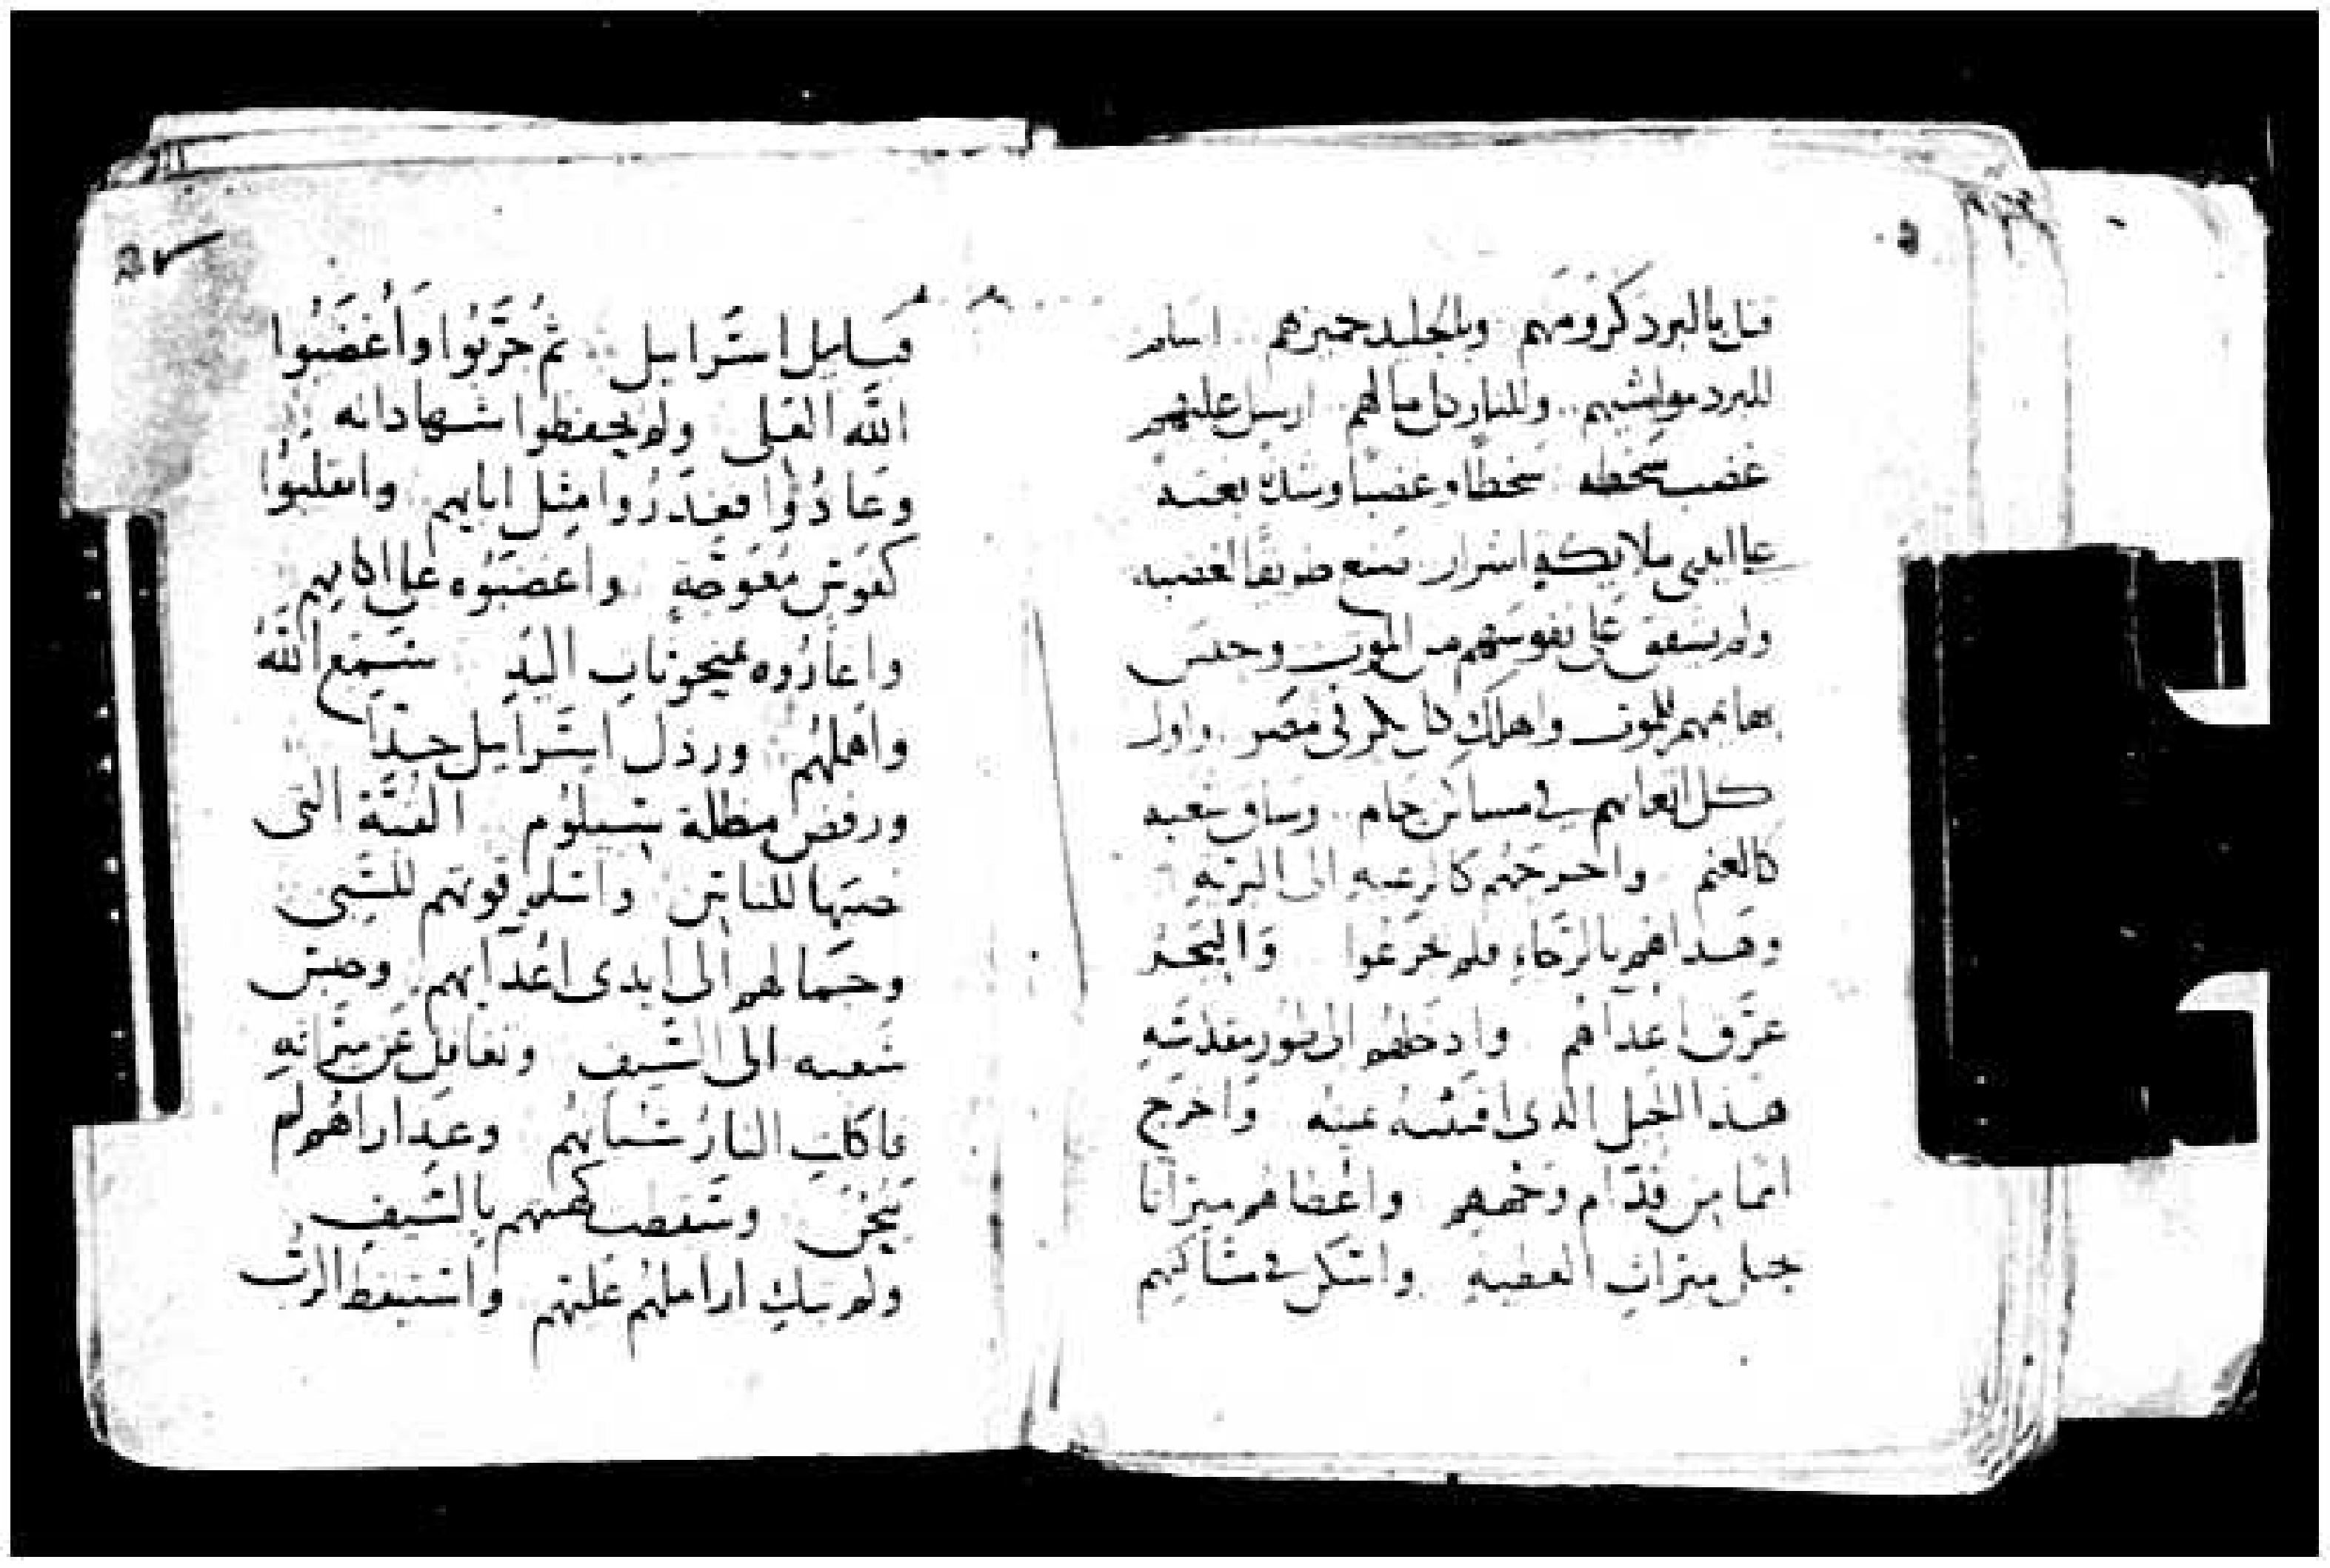 قتل بالبرد كرومهم وبالجليد جميزهم اسلم
للبرد مواشيهم وللنار كل مالهم ارسل عليهم
غضب سخطه سخطا وغضبا وشدة بعثه
على ايدي ملايكة اشرار صنع طريقا لغضبه
ولم يشفق على نفوسهم من الموت وحبس
بهايمهم للموت واهلك كل بكر في مصر واول
كل اتعابهم في مساكن حام وساق شعبه
كالغنم واخرجهم كالرعيه الى البريه
وهداهم بالرجاء فلم جزعوا والبحر
غرق اعداهم وادخلهم الى طور مقدسه
هذا الجبل الذي اقتنته يمينه واخرج
امما من قدام وجههم واعطاهم ميراثا
حبل ميراث العطيه واسكن في مساكنهم
قبايل اسرايل ثم جربوا واغضبوا
الله العلي ولم يحفظوا شهاداته
وعادوا فغدروا مثل ابايهم وانقلبوا
كقوس معوجة واغضبوه على اكامهم
واغاروه بمنحوتاتهم سمع الله
واهملهم ورذل اسرايل جدا
ورفض مظلة سيلوم القبة التي
نصبها للناس واسلم قوتهم للسبي
وجمالهم الى ايدي اعدايهم وحبس
شعبه الى السيف وتغافل عن ميراثه
فاكلت النار شبابهم وعذاراهم لم
ينحن وسقطت كهنتهم بالسيف
ولم تبك اراملهم عليهم واستيقظ الرب